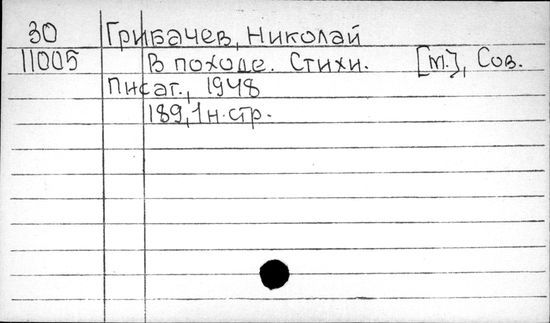 30 Грибачев, Николай
11005 В походе. Стихи. [М.], Сов.
Писат., 1948
189, 1 н. стр.